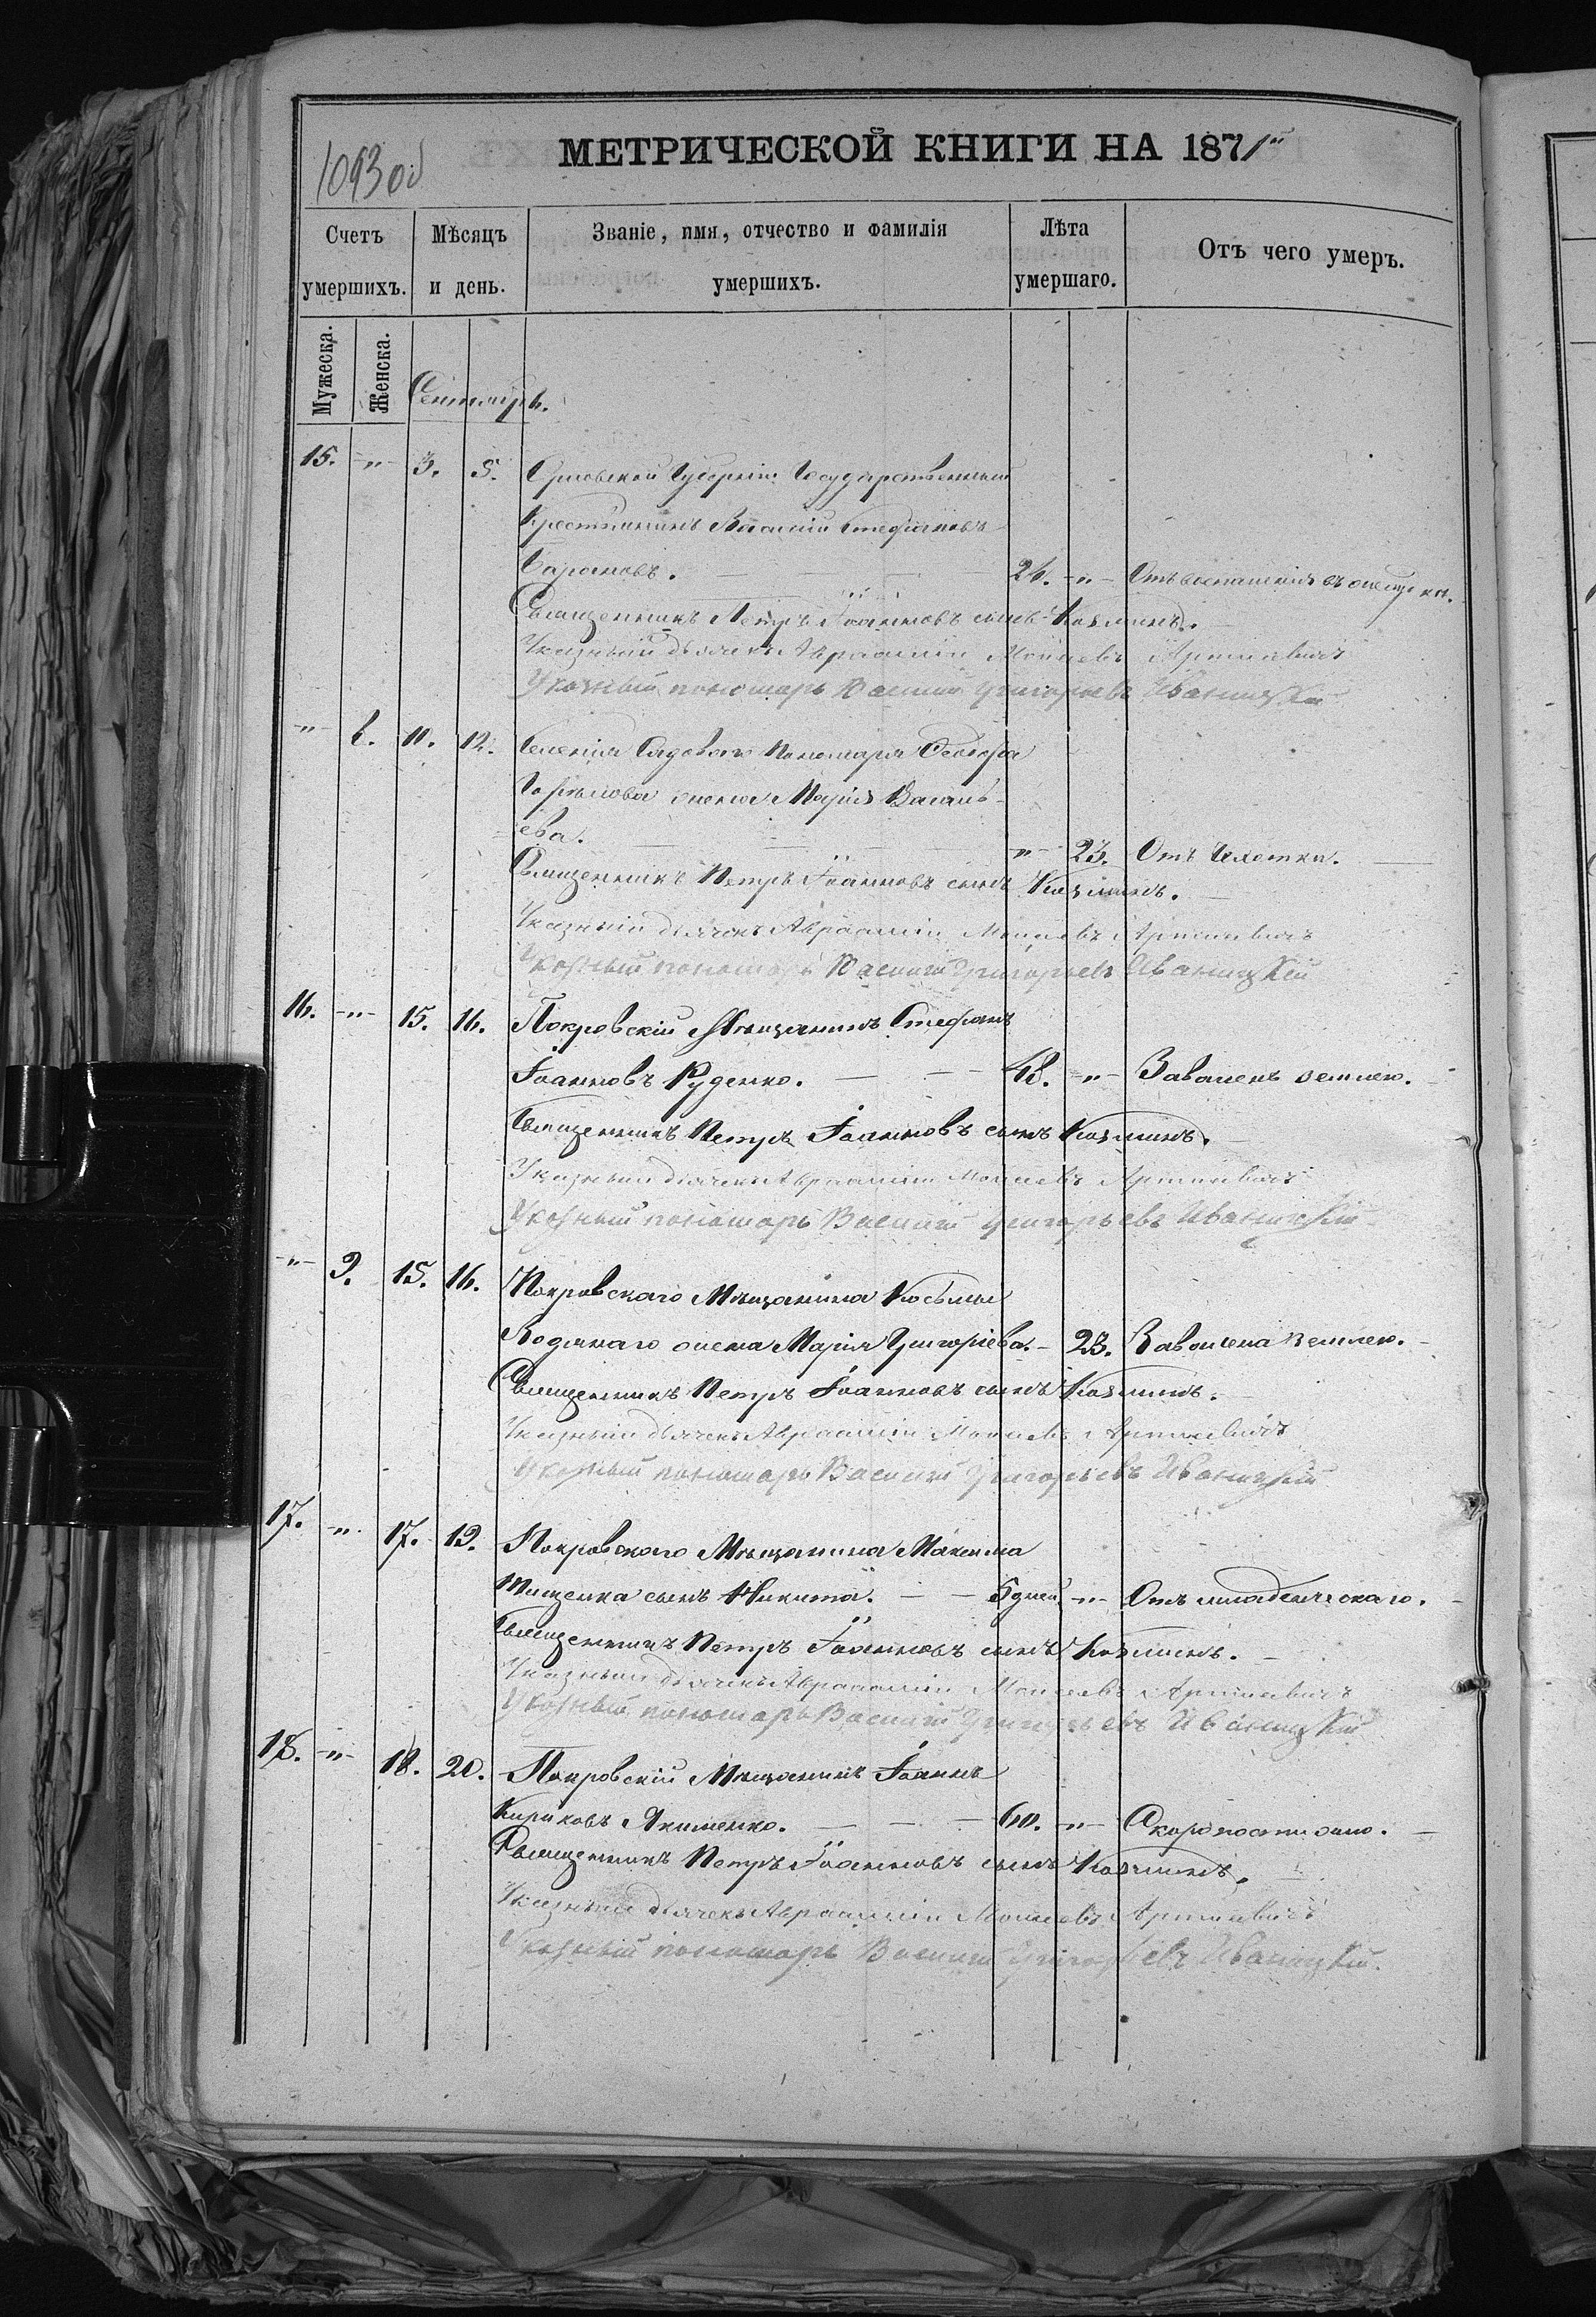 МЕТРИЧЕСКОЙ КНИГИ НА 1871й
1093 об
Счетъ умершихъ.
Мѣсяцъ и день.
Званіе, имя, отчество и фамилія умершихъ.
Лѣта умершаго.
Отъ чего умеръ.
Мужеска.
Женска.
Сентябрь.
15. -"- 3. 5. Орловской Губерніи Государственный
Крестьянинъ Василій Стефановъ
24. -"- Отъ воспаленія
Священникъ Петръ Іоанновъ сынъ Козминъ.
Указный дьячекъ Авраамій Моисеевъ
Указный пономарь Василій Григорьевъ Иваницкій
-"- 8. 11. 12. Селенія Пономаря Ѳеодора
жена Марія Василь-
ева. -"- 23. Отъ Чахотки.
Священникъ Петръ Іоанновъ сынъ Козминъ.
Указный дьячекъ Авраамій Моисеевъ
Указный пономарь Василій Григорьевъ Иваницкій
16. -"- 15. 16. Покровскій Мѣщанинъ Стефанъ
Іоанновъ Руденко. 48. -"- Заваленъ землею.
Священникъ Петръ Іоанновъ сынъ Козминъ.
Указный дьячекъ Авраамій Моисеевъ
Указный пономарь Василій Григорьевъ Иваницкій
-"- 9. 15. 16. Покровскаго Мѣщанина Косьмы
Водянаго жена Марія Григоріева. - 23. Завалена землею.
Священникъ Петръ Іоанновъ сынъ Козминъ.
Указный дьячекъ Авраамій Моисеевъ
Указный пономарь Василій Григорьевъ Иваницкій
17. -"- 17. 19. Покровскаго Мѣщанина Максима
Тищенка сынъ Никита. 5 дней -"- Отъ младенческаго.
Священникъ Петръ Іоанновъ сынъ Козминъ.
Указный дьячекъ Авраамій Моисеевъ
Указный пономарь Василій Григорьевъ Иваницкій
18. -"- 18. 20. Покровскій Мѣщанинъ Іоаннъ
Кириковъ Якименко. 60. -"- Скоропостижно.
Священникъ Петръ Іоанновъ сынъ Козминъ.
Указный дьячекъ Авраамій Моисеевъ
Указный пономарь Василій Григорьевъ Иваницкій.